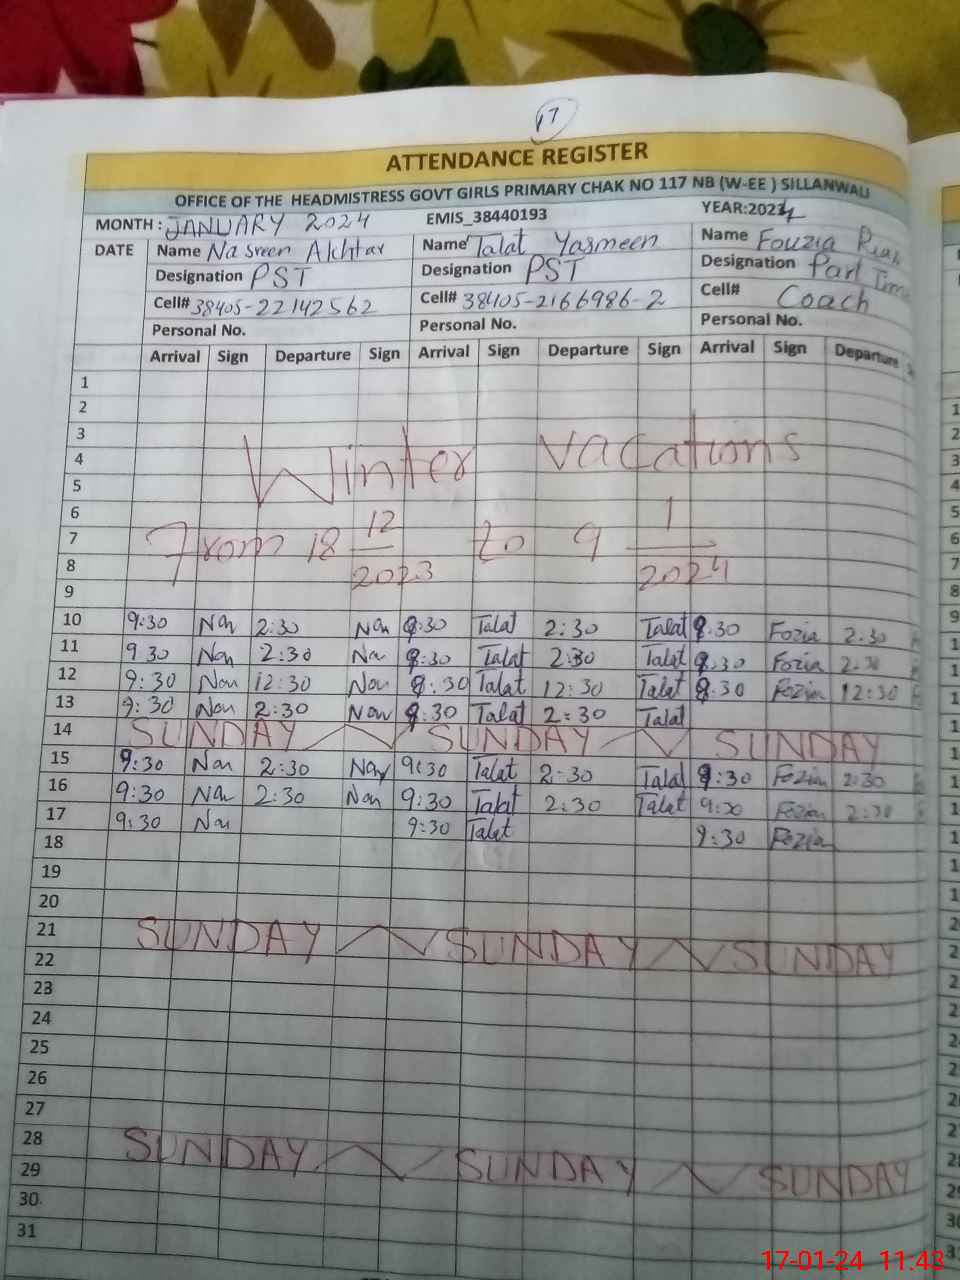 17
ATTENDANCE REGISTER
OFFICE OF THE HEADMISTRESS GOVT GIRLS PRIMARY CHAK NO 117 NB (W-EE ) SILLANWALI
MONTH : JANUARY 2024 EMIS_38440193 YEAR:2024
DATE Name Nasreen Akhtar Name Talat Yasmeen Name Fouzia
Designation PST Designation PST Designation Part Time
Cell# 38405-22142562 Cell# 38405-2166986-2 Cell# Coach
Personal No. Personal No. Personal No.
Arrival Sign Departure Sign Arrival Sign Departure Sign Arrival Sign Departure
1
2
3
4 Winter vacations
5
6
7 From 18 12/2023 to 9 1/2024
8
9
10 9:30 Nan 2:30 Nan 9:30 Talat 2:30 Talat 9.30 Fozia 2.30
11 9 30 Nan 2:30 Na 9:30 Talat 2:30 Talat 9.30 Fozia 2.30
12 9:30 Nan 12:30 Nan 9:30 Talat 12:30 Talat 9.30 Fozia 12:30
13 9:30 Nan 2:30 Nan 9:30 Talat 2:30 Talat
14 SUNDAY SUNDAY SUNDAY
15 9:30 Nan 2:30 Nan 9:30 Talat 2:30 Talat 9:30 Fozia 2:30
16 9:30 Na 2:30 Nan 9:30 Talat 2:30 Talat 9:30 Fozia 2:30
17 9:30 Nan 9:30 Talat 9:30 Fozia
18
19
20
21 SUNDAY SUNDAY SUNDAY
22
23
24
25
26
27
28 SUNDAY SUNDAY SUNDAY
29
30
31
17-01-24 11:43